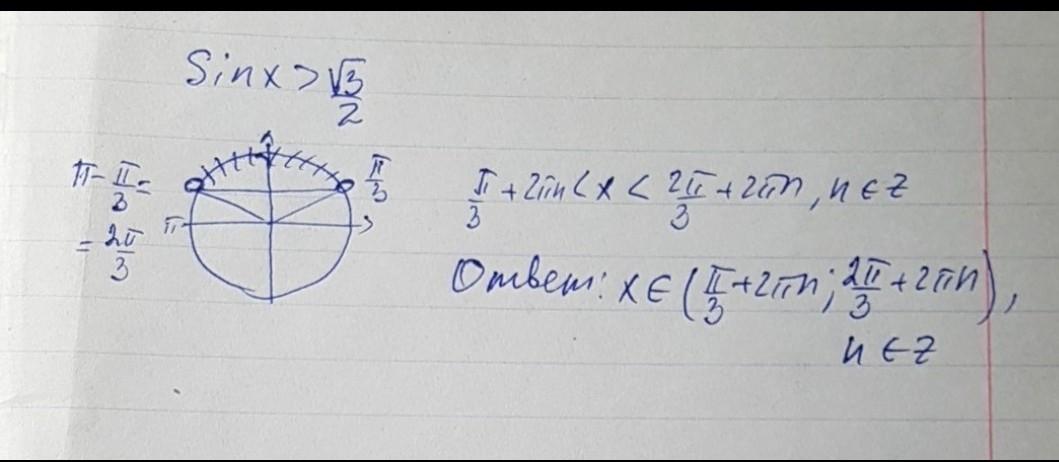 Sinx > √3/2
π - π/3 =
= 2π/3
π
π/3
π/3 + 2πn < x < 2π/3 + 2πn, n ∈ Z
Ответ: x ∈ (π/3 + 2πn; 2π/3 + 2πn),
n ∈ Z